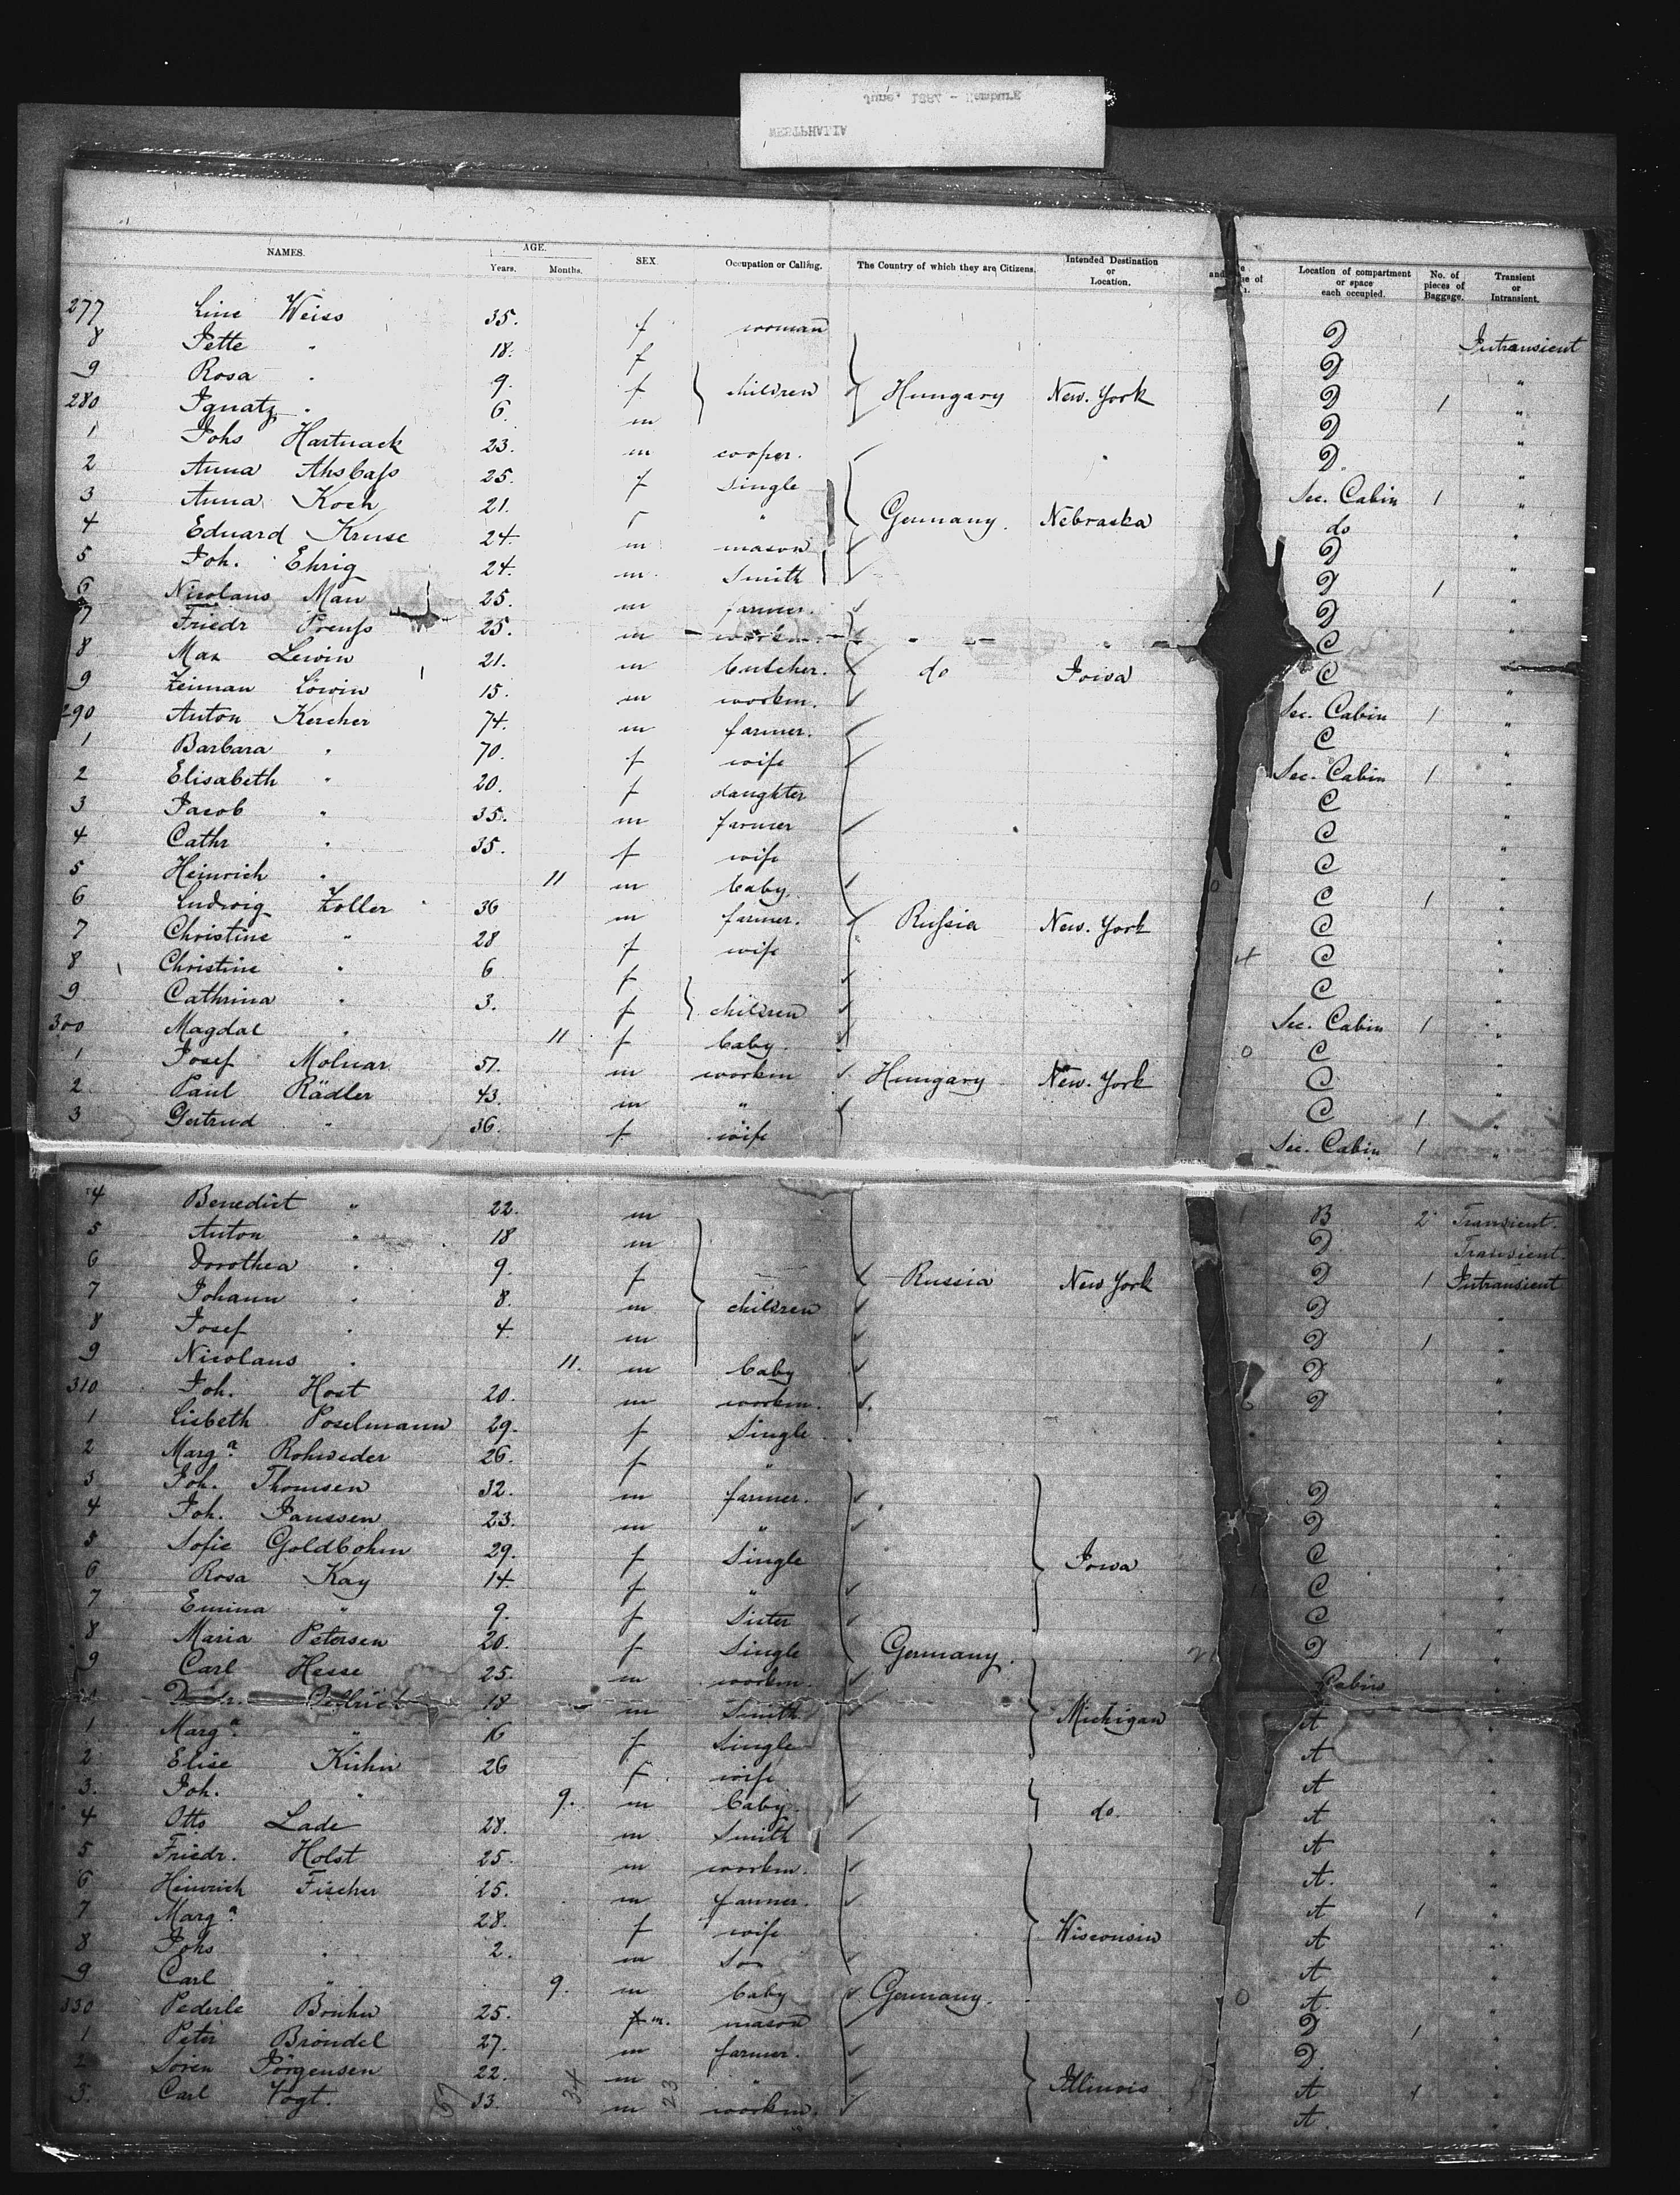 June, 1887 - Hamburg
WESTPHALIA
NAMES. AGE. Years. Months. SEX. Occupation or Calling. The Country of which they are Citizens. Intended Destination or Location. Location of compartment or space each occupied. No. of pieces of Baggage. Transient or Intransient.
277 Line Weiss 35. f woman D Intransient
8 Jette " 18. f D
9 Rosa " 9. f children Hungary New. York D 1 "
280 Ignatz " 6. m D "
1 Johs Hartnack 23. m cooper. D. "
2 Anna Ahsbahs 25. f Single Sec. Cabin 1 "
3 Anna Koch 21. f " Germany. Nebraska do "
4 Eduard Kruse 24. m mason D "
5 Joh. Ehrig 24. m. Smith D 1 "
6 Nicolaus Mau 25. m farmer. D "
7 Friedr Preuss 25. m workm. " " C
8 Max Lewin 21. m butcher. do Iowa C "
9 Lewin 15. m workm. Sec. Cabin 1 "
290 Anton Kercher 74. m farmer. C "
1 Barbara " 70. f wife Sec. Cabin 1 "
2 Elisabeth " 20. f daughter C
3 Jacob " 35. m farmer C "
4 Cathr " 35. f wife C "
5 Heinrich " 11 m baby. C 1 "
6 Ludwig Zoller 36 m farmer. Russia New. York C "
7 Christine " 28 f wife C "
8 Christine " 6 f C "
9 Cathrina " 3. f children Sec. Cabin 1 "
300 Magdal " 11 f baby. C "
1 Josef Molnar 51. m workm Hungary New. York C "
2 Paul Rädler 43. m " C 1 "
3 Gertrud " 36. f wife Sec. Cabin 1 "
4 Benedict " 22. m B 2 Transient.
5 Anton " 18 m D Transient
6 Dorothea " 9. f Russia New York D 1 Intransient
7 Johann " 8. m children D "
8 Josef " 4. m D 1 "
9 Nicolaus " 11. m baby D "
310 Joh. Host 20. m workm. D "
1 Lisbeth Poselmann 29. f Single "
2 Marg.a Rohweder 26. f " "
3 Joh. Thomsen 32. m farmer. D "
4 Joh. Janssen 23. m " D "
5 Sofie Goldbohm 29. f Single Iowa C "
6 Rosa Kay 14. f " C "
7 Emma " 9. f Sister C "
8 Maria Petersen 20. f Single Germany. D 1 "
9 Carl Hesse 25. m workm. Cabin "
18 m Smith Michigan A "
1 Marg.a " 16 f Single A "
2 Elise Kühn 26 f wife A "
3. Joh. " 9. m baby do. A "
4 Otto Lade 28. m Smith A "
5 Friedr. Holst 25. m workm. A. "
6 Heinrich Fischer 25. m farmer. A 1 "
7 Marg.a 28. f wife Wisconsin A "
8 Johs " 2. m Son A "
9 Carl " 9. m baby Germany. A. "
330 Pederle 25. m. mason D 1 "
1 Peter Bröndel 27. m farmer. D. "
2 Sören Jörgensen 22. m " Illinois A 1 "
3. Carl Vogt. 33. m workm. A. "
34 23